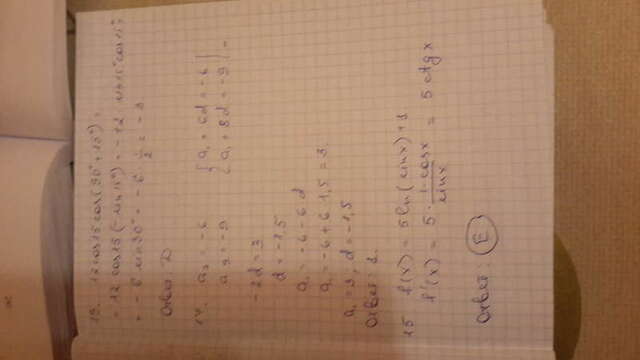 13. 12 cos 15 cos (90° + 15°) =
= 12 cos 15 (- sin 15°) = - 12 sin 15° cos 15°
= - 6 sin 30° = - 6 · 1/2 = - 3
Ответ: D
14. a₇ = -6 { a₁ + 6d = -6 |
a₉ = -9 { a₁ + 8d = -9 | -
-2d = 3
d = -1,5
a₁ = -6 - 6d
a₁ = -6 + 6 · 1,5 = 3
a₁ = 3; d = -1,5
Ответ:
15 f(x) = 5 ln (sin x) + 3
f'(x) = 5 · 1 · cos x / sin x = 5 ctg x
Ответ: E